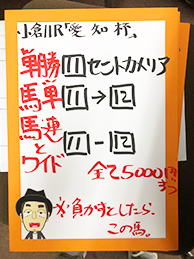 小倉11R「愛知杯」
単勝 11 セントカメリア
馬単 11→12
馬連とワイド 11-12
全て5000円ずつ
※負かすとしたら、
この馬。